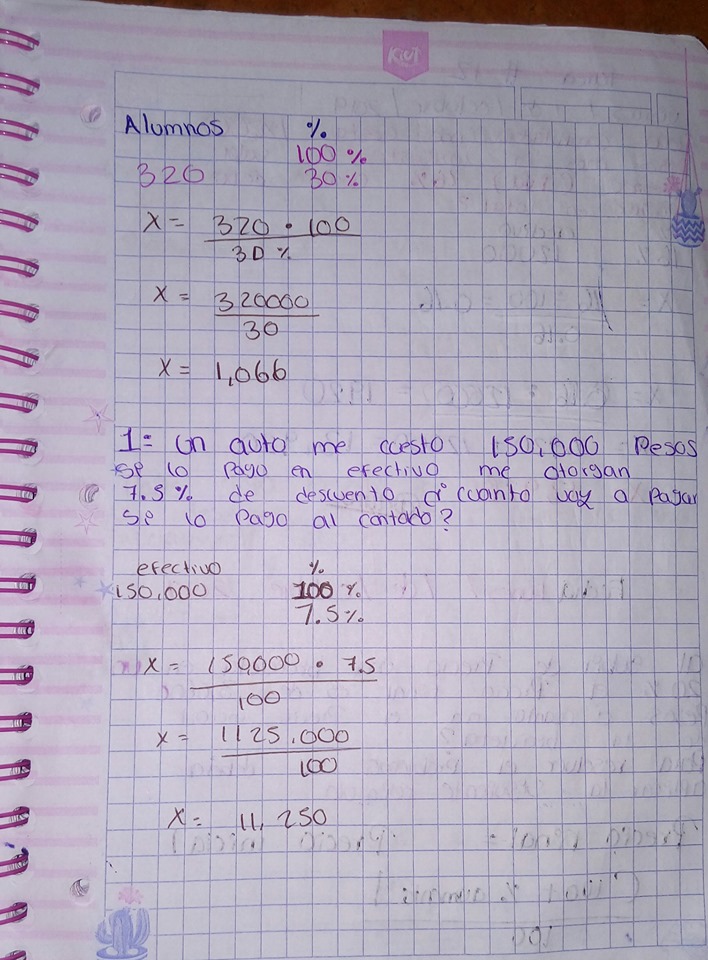 Kiut
Alumnos %
100 %
320 30 %
x = 320 • 100
30 %
x = 320000
30
x = 1,066
1= Un auto me cuesto 150,000 Pesos
se lo pago en efectivo me otorgan
7.5 % de descuento d' cuanto voy a pagar
se lo pago al contado?
efectivo %
150,000 100 %
7.5 %
x = 150,000 • 7.5
100
x = 1125.000
100
x = 11,250